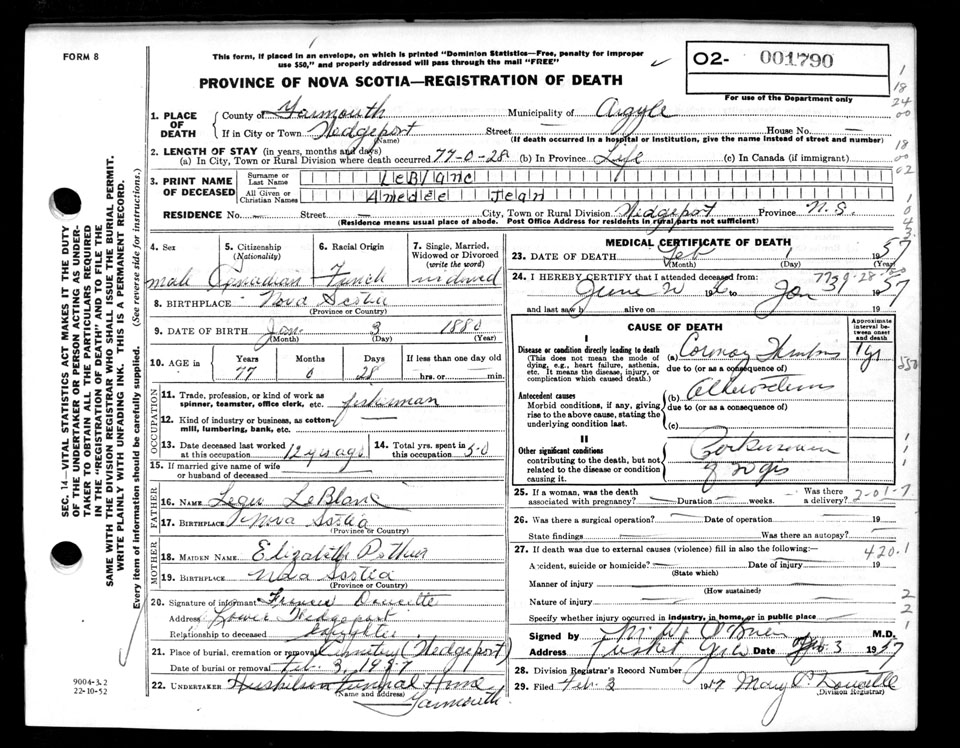 FORM 8
This form, if placed in an envelope, on which is printed "Dominion Statistics—Free, penalty for improper
use $50," and properly addressed will pass through the mail "FREE"
PROVINCE OF NOVA SCOTIA—REGISTRATION OF DEATH
O2- 001790
For use of the Department only
1. PLACE OF DEATH
County of Yarmouth Municipality of Argyle
If in City or Town Wedgeport Street — House No. —
(Name) (If death occurred in a hospital or institution, give the name instead of street and number)
2. LENGTH OF STAY (in years, months and days)
(a) In City, Town or Rural Division where death occurred 77-0-28 (b) In Province Life (c) In Canada (if immigrant)
3. PRINT NAME OF DECEASED
Surname or Last Name LeBlanc
All Given or Christian Names Amedee Jean
RESIDENCE No. — Street — City, Town or Rural Division Wedgeport Province N.S.
(Residence means usual place of abode. Post Office Address for residents in rural parts not sufficient)
4. Sex
male
5. Citizenship
(Nationality)
Canadian
6. Racial Origin
French
7. Single, Married, Widowed or Divorced
(write the word)
widowed
8. BIRTHPLACE Nova Scotia
(Province or Country)
9. DATE OF BIRTH Jan 3 1880
(Month) (Day) (Year)
10. AGE in
Years Months Days If less than one day old
77 0 28 hrs. or min.
OCCUPATION
11. Trade, profession, or kind of work as spinner, teamster, office clerk, etc. fisherman
12. Kind of industry or business, as cotton-mill, lumbering, bank, etc.
13. Date deceased last worked at this occupation 12 yrs ago
14. Total yrs. spent in this occupation 50
15. If married give name of wife or husband of deceased
FATHER
16. NAME LeBlanc
17. BIRTHPLACE Nova Scotia
(Province or Country)
MOTHER
18. MAIDEN NAME Elizabeth Pothier
19. BIRTHPLACE Nova Scotia
(Province or Country)
20. Signature of informant Frances Doucette
Address Lower Wedgeport
Relationship to deceased daughter
21. Place of burial, cremation or removal Cemetery (Wedgeport)
Date of burial or removal Feb. 3, 1957
22. UNDERTAKER Funeral Home
(Name and address)
Yarmouth
MEDICAL CERTIFICATE OF DEATH
23. DATE OF DEATH Feb 1 1957
(Month) (Day) (Year)
24. I HEREBY CERTIFY that I attended deceased from:
June 20 Jan 31 1957
and last saw h alive on 19
CAUSE OF DEATH
Approximate interval between onset and death
I
Disease or condition directly leading to death
(This does not mean the mode of dying, e.g., heart failure, asthenia, etc. It means the disease, injury, or complication which caused death.)
(a) 1 yr
due to (or as a consequence of)
Antecedent causes
Morbid conditions, if any, giving rise to the above cause, stating the underlying condition last.
(b)
due to (or as a consequence of)
(c)
II
Other significant conditions
contributing to the death, but not related to the disease or condition causing it.
25. If a woman, was the death associated with pregnancy? — Duration — weeks. Was there a delivery?
26. Was there a surgical operation? Date of operation 19
State findings Was there an autopsy?
27. If death was due to external causes (violence) fill in also the following:—
420.1
Accident, suicide or homicide? Date of injury 19
(State which)
Manner of injury
(How sustained)
Nature of injury
Specify whether injury occurred in industry, in home, or in public place
Signed by O'Brien M.D.
Address Tusket Date Feb. 3 1957
28. Division Registrar's Record Number
29. Filed Feb. 3 1957 Mary P. Doucette
(Division Registrar)
9004-3.2
22-10-52
SEC. 14—VITAL STATISTICS ACT MAKES IT THE DUTY
OF THE UNDERTAKER OR PERSON ACTING AS UNDER-
TAKER TO OBTAIN ALL THE PARTICULARS REQUIRED
IN THE "REGISTRATION OF DEATH" AND TO FILE THE
SAME WITH THE DIVISION REGISTRAR WHO SHALL ISSUE THE BURIAL PERMIT.
WRITE PLAINLY WITH UNFADING INK. THIS IS A PERMANENT RECORD.
Every item of information should be carefully supplied. (See reverse side for instructions.)